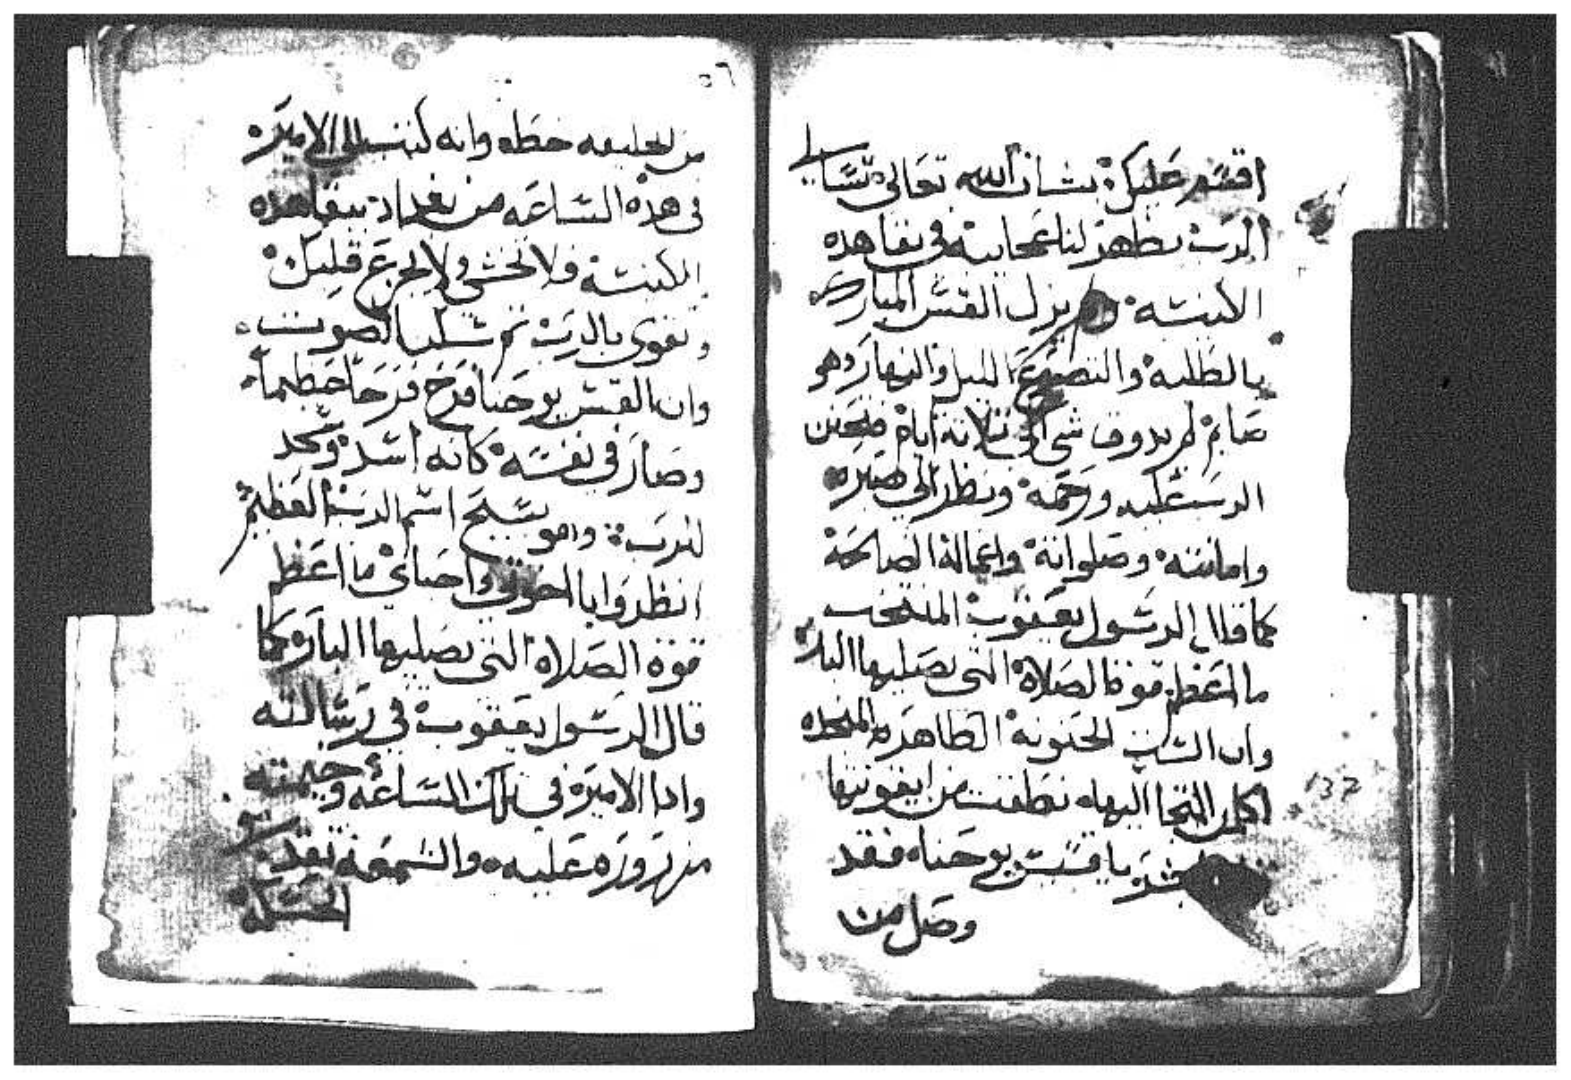 اقسم عليك بشان الله تعالى تسالي
الرب يظهر لنا عجايبه في بقا هذه
الكنيسه ولم يزل القس المبارك
بالطلبه والتضرع الليل والنهار وهو
صايم لم يدوق شي الي تلاتة ايام فتحنن
الرب عليه ورحمه ونظر الي صبره
وامانته وصلواته واعماله الصالحة
كما قال الرسول يعقوب المنتخب
ما اعظم قوة الصلاة التي يصليها البار
وان الست الحنونه الطاهره المنجده
لكلمن التجا اليها نطقت من ايقونتها
يا قسيس يوحنا فقد
وصل من
٥٦
من الخليفه خطه وانه كتب الي الاميره
في هذه الساعه من بغداد ببقا هذه
الكنيسه فلا تخشي ولا يجزع قلبك
وتقوي بالرب تم سلب الصوت
وان القس يوحنا فرح فرحا عظيما
وصار في نفسه كانه اسد وسجد
للرب وهو يسبح اسم الرب العظيم
انظروا يا اخوتي واحباي ما اعظم
قوة الصلاة التي يصليها البار كما
قال الرسول يعقوب في رسالته
وادا الاميره في تلك الساعه وخيمته
مزروره عليه والشمعه تقد
137